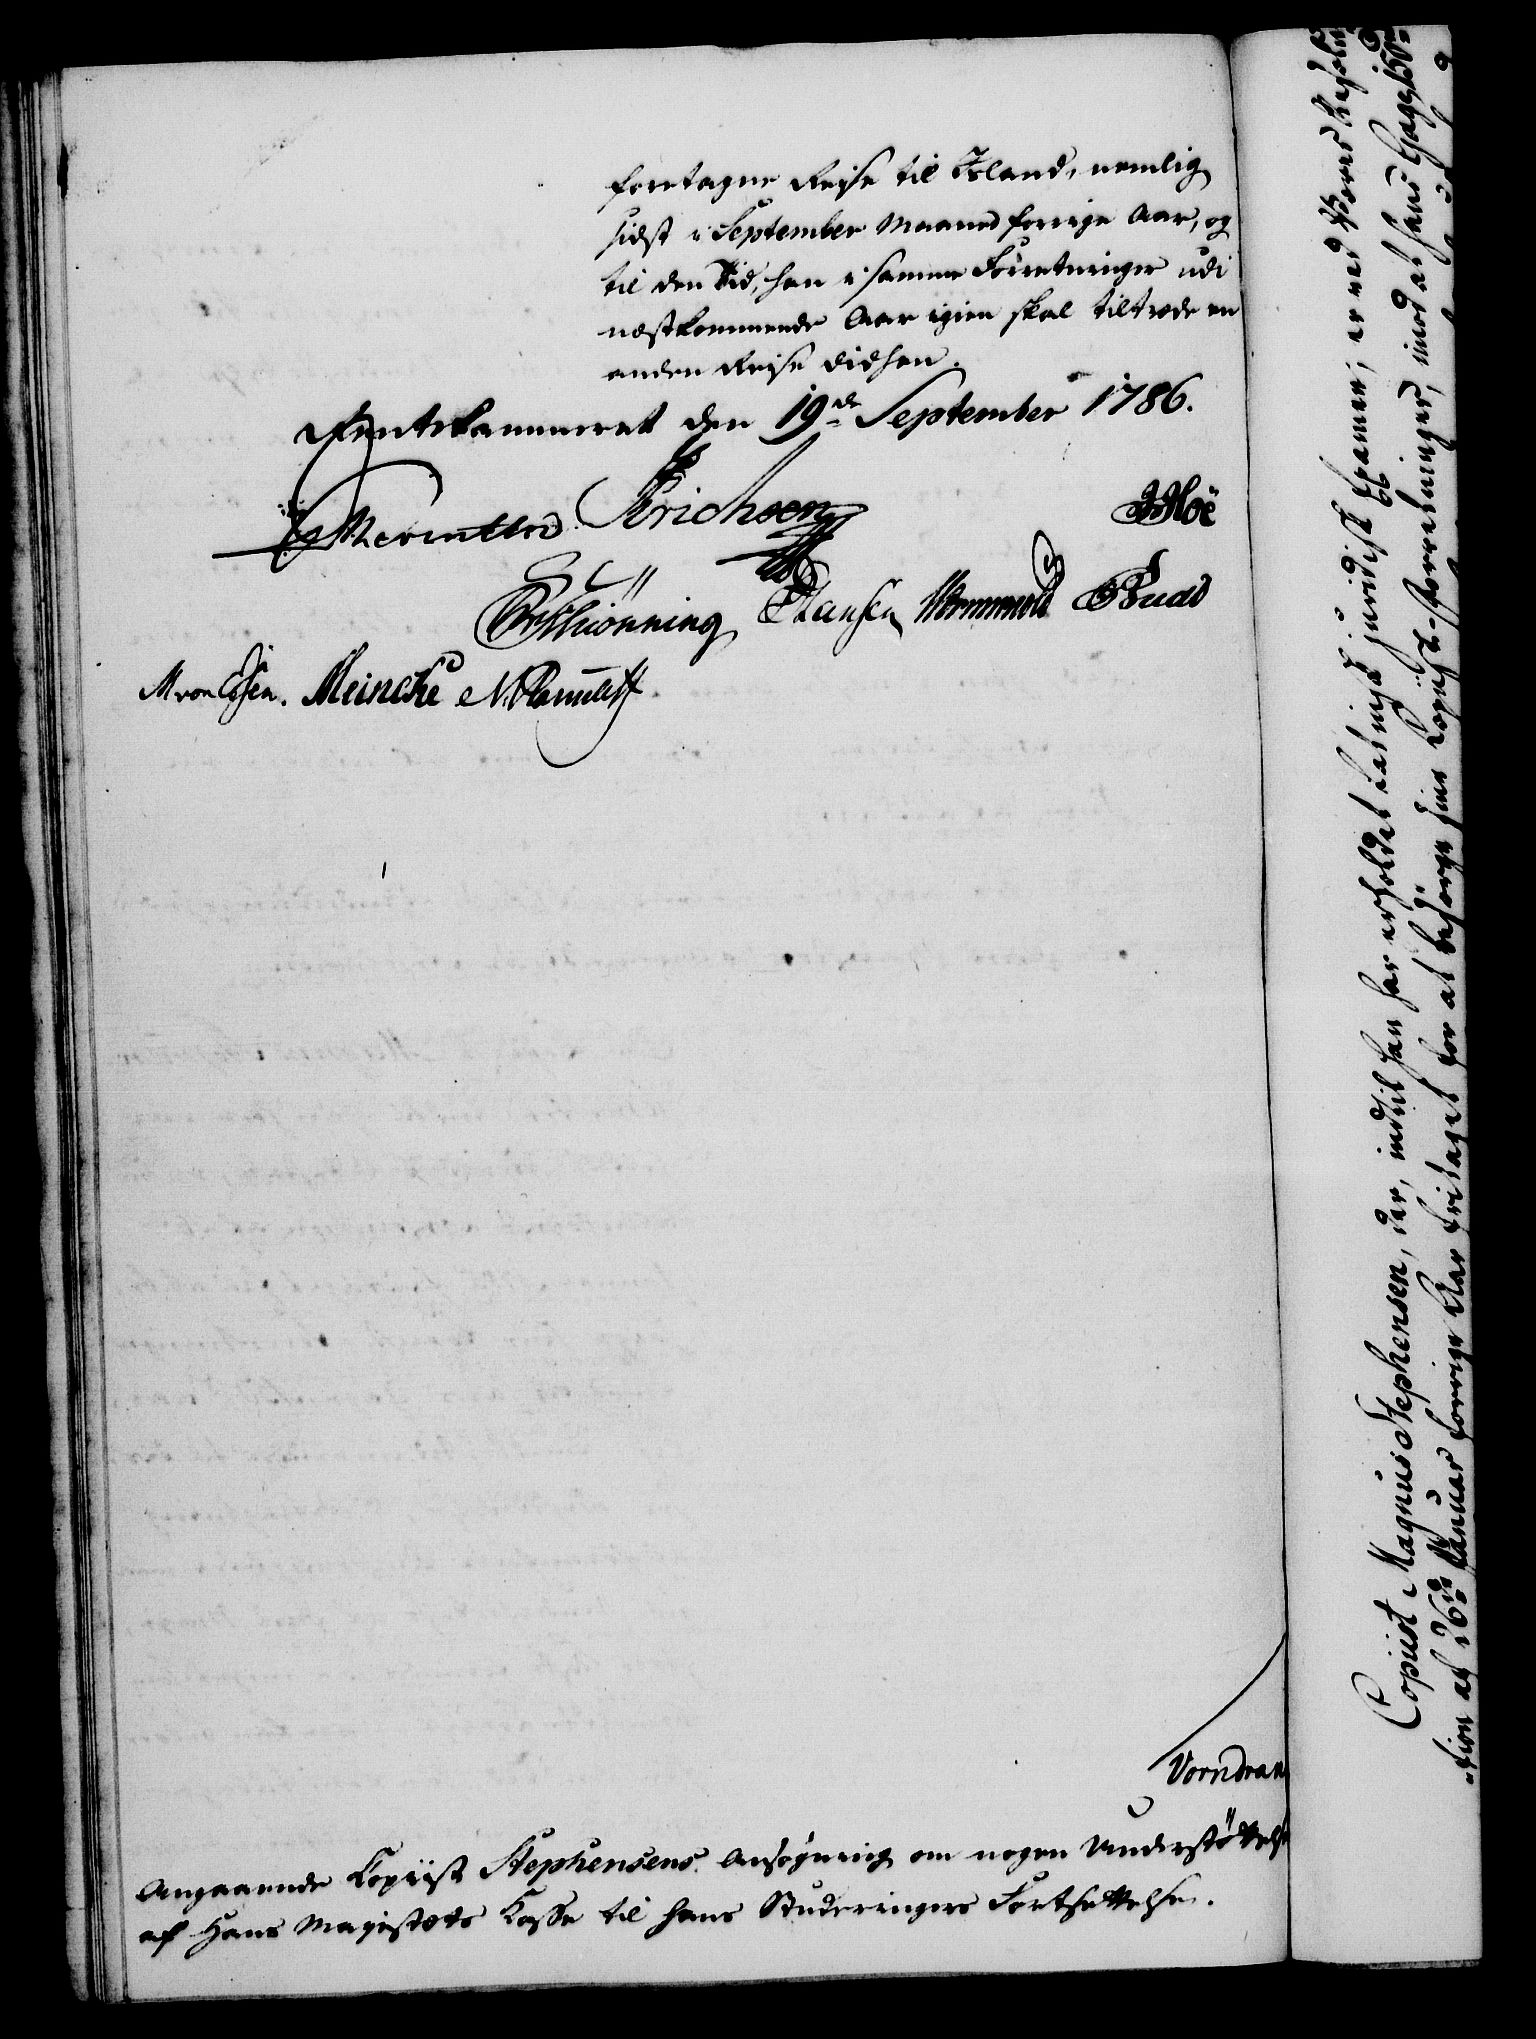 foretagne Reise til Island, nemlig
sidst i September Maaned forrige Aar, og
til den Tid, han i samme Forretninger udi
næstkommende Aar igien skal tiltræde en
anden Reise didhen.
Rentekammeret den 19de September 1786.
Erichsen JHoë
Schiönning Hansen Wormskiold GBuds
M von Essen. Meincke
Vorndran
Angaaende Kopiist Stephensens Ansøgning om nogen Understöttelse
af Hans Majestæts Kasse til hans Studeringers Fortsættelse.
Copiist Magnus Stephensen, der, indtil han har erholdet Latinsk juridisk Examen, er ved Deres
-tion af 26de Januar forrige Aar fritaget for at besörge sine Copiist-Forretninger, imod at hans Gage 150